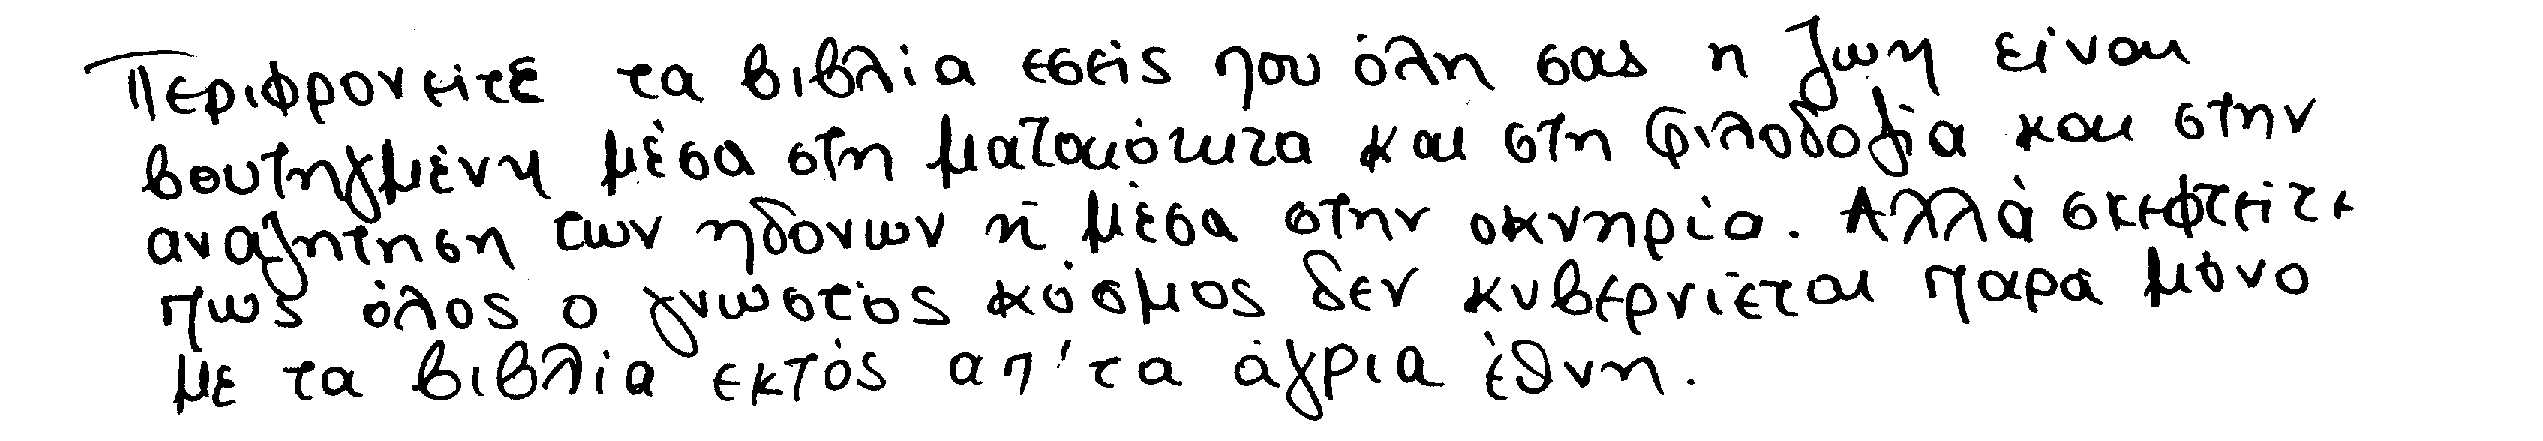 Περιφρονείτε τα βιβλία εσείς που όλη σας η ζωή είναι
βουτηγμένη μέσα στη ματαιότητα και στη φιλοδοξία και στην
αναζήτηση των ηδονών ή μέσα στην οκνηρία. Αλλά σκεφτείτε
πως όλος ο γνωστός κόσμος δεν κυβερνιέται παρά μόνο
με τα βιβλία εκτός απ' τα άγρια έθνη.